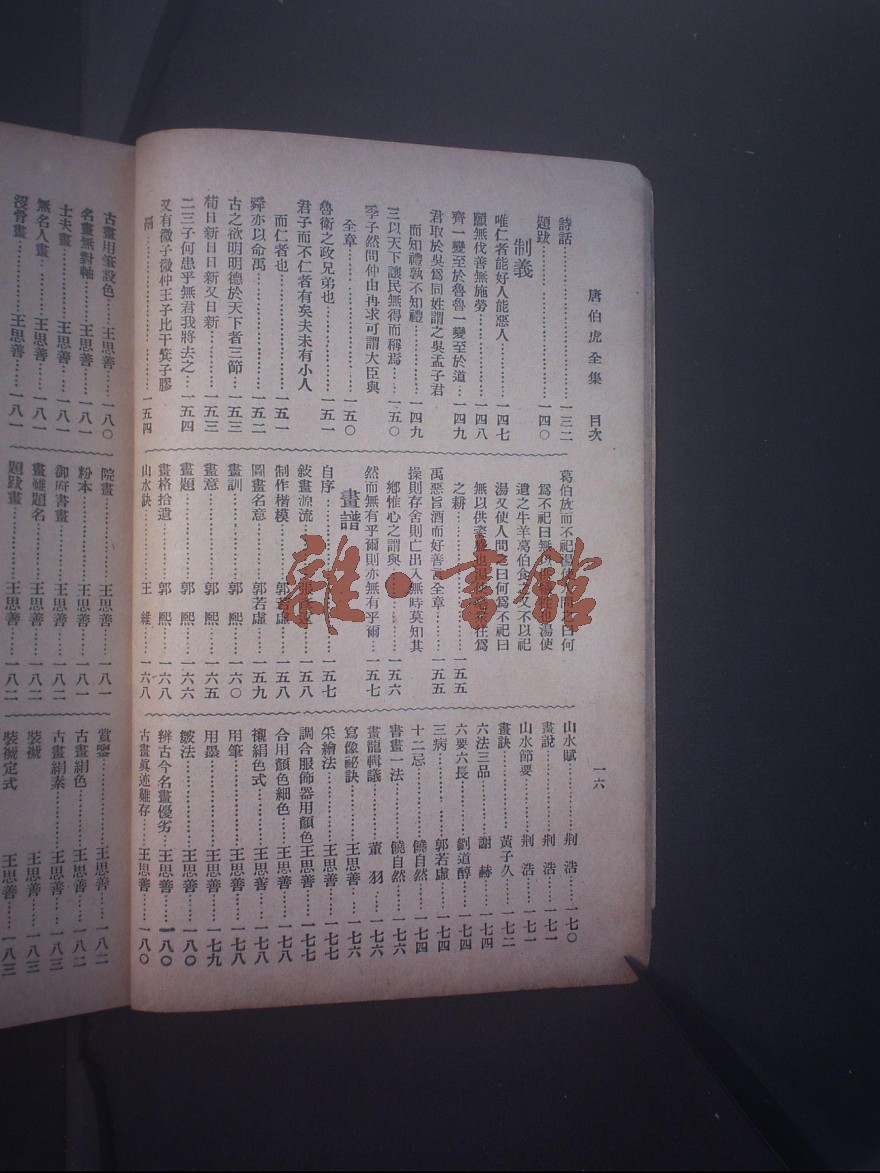 唐伯虎全集 目次
一六
詩話…………一三二
題跋…………一四〇
制義
唯仁者能好人能惡人………一四七
願無伐善無施勞………一四八
齊一變至於魯魯一變至於道……一四九
君取於吳爲同姓謂之吳孟子君
而知禮孰不知禮………一四九
三以天下讓民無得而稱焉……一五〇
季子然問仲由冉求可謂大臣與
全章…………一五〇
魯衛之政兄弟也………一五一
君子而不仁者有矣夫未有小人
而仁者也…………一五一
舜亦以命禹…………一五二
古之欲明明德於天下者三節……一五三
苟日新日日新又日新………一五三
二三子何患乎無君我將去之……一五四
又有微子微仲王子比干箕子膠
鬲…………一五四
葛伯放而不祀湯使人問之曰何
爲不祀曰無以供犧牲也湯使
遺之牛羊葛伯食之又不以祀
湯又使人問之曰何爲不祀曰
無以供粢盛也湯使亳衆往爲
之耕…………一五五
禹惡旨酒而好善言全章……一五五
操則存舍則亡出入無時莫知其
鄉惟心之謂與………一五六
然而無有乎爾則亦無有乎爾…一五七
畫譜
自序…………一五七
敍畫源流……一五八
制作楷模……郭若虛……一五八
圖畫名意……郭若虛……一五九
畫訓……郭 熙……一六〇
畫意……郭 熙……一六五
畫題……郭 熙……一六六
畫格拾遺……郭 熙……一六八
山水訣……王 維……一六八
山水賦……荆 浩……一七〇
畫說……荆 浩……一七一
山水節要……荆 浩……一七一
畫訣……黃子久……一七二
六法三品……謝 赫……一七四
六要六長……劉道醇……一七四
三病……郭若虛……一七四
十二忌……饒自然……一七四
書畫一法……饒自然……一七六
畫龍輯議……董 羽……一七六
寫像祕訣……王思善……一七六
采繪法……王思善……一七七
調合服飾器用顏色王思善……一七七
合用顏色細色……王思善……一七八
襯絹色式……王思善……一七八
用筆……王思善……一七八
用墨……王思善……一七九
皴法……王思善……一八〇
辨古今名畫優劣…王思善……一八〇
古畫眞迹難存……王思善……一八〇
古畫用筆設色……王思善……一八〇
名畫無對軸……王思善……一八一
士夫畫……王思善……一八一
無名人畫……王思善……一八一
沒骨畫……王思善……一八一
院畫……王思善……一八一
粉本……王思善……一八一
御府書畫……王思善……一八二
畫難題名……王思善……一八二
題跋畫……王思善……一八二
賞鑒……王思善……一八二
古畫絹色……王思善……一八二
古畫絹素……王思善……一八三
裝褫……王思善……一八三
裝褫定式……王思善……一八三
雜·書館